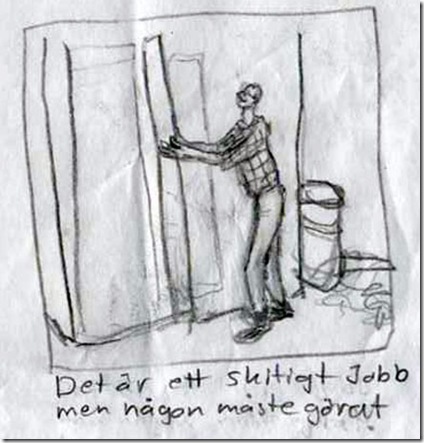 Det är ett skitigt Jobb
men någon måste görat